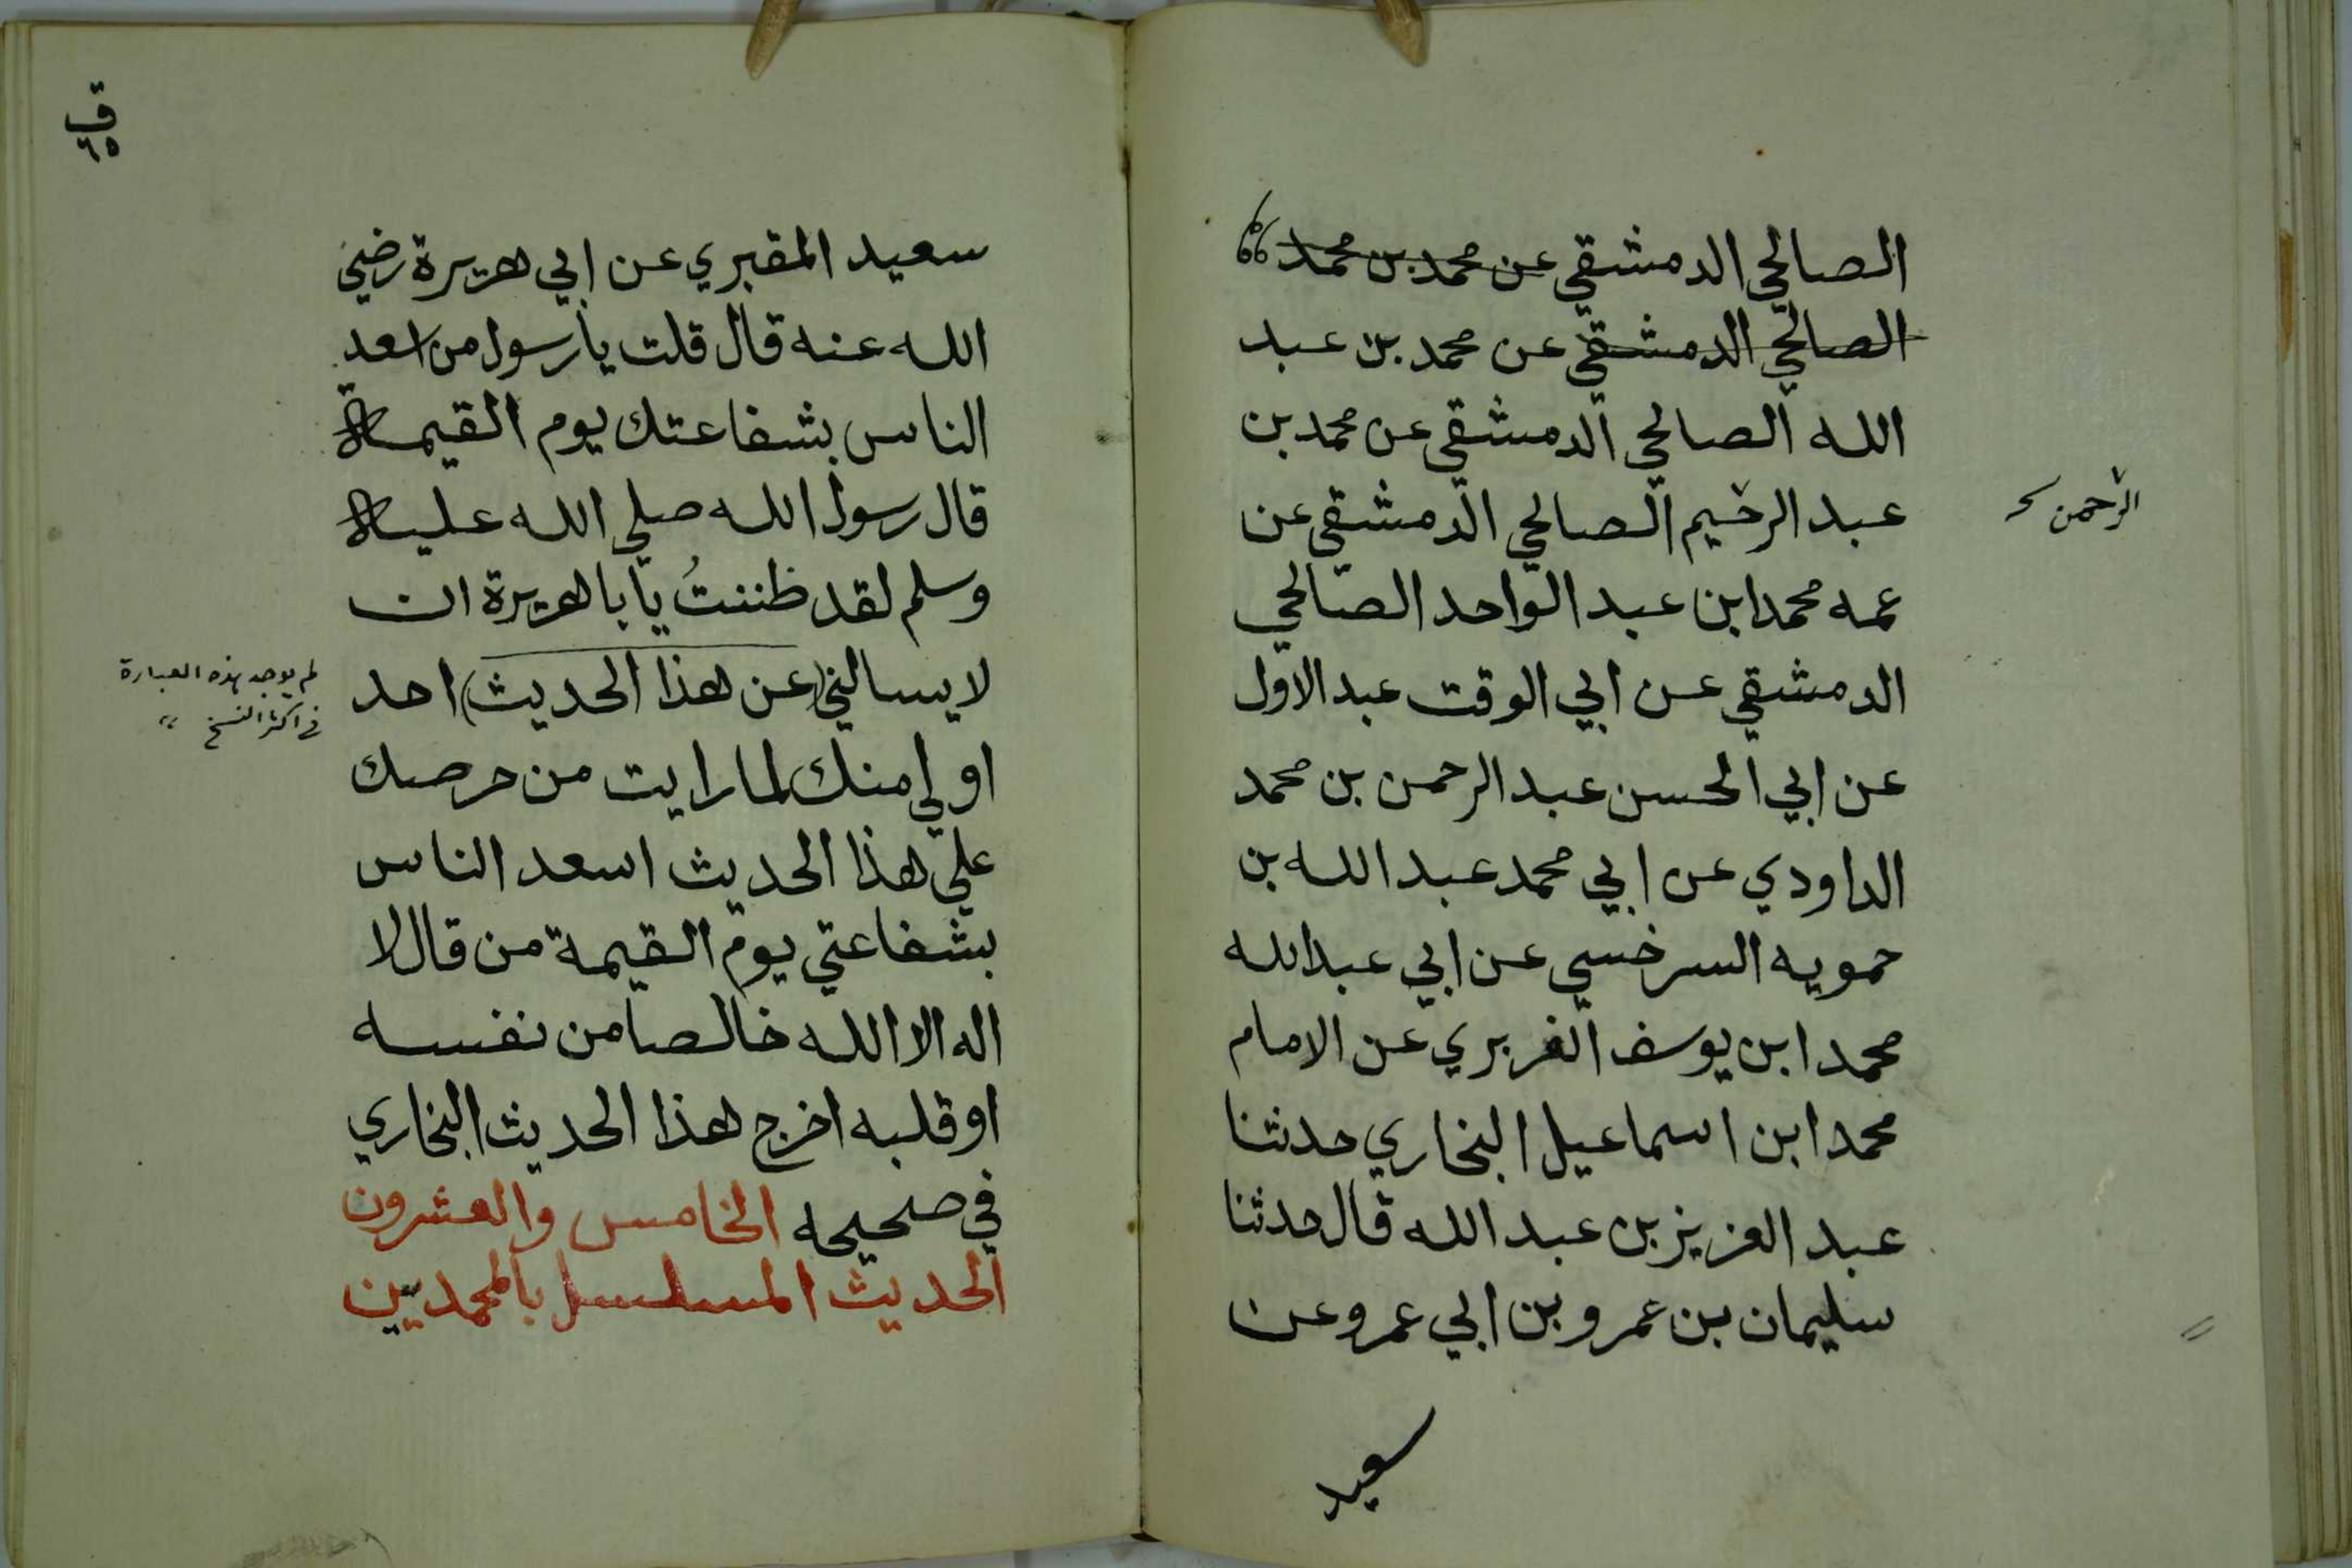 الصالحي الدمشقي عن محمد بن محمد
الصالحي الدمشقي عن محمد بن عبد
الله الصالحي الدمشقي عن محمد بن
عبد الرحيم الصالحي الدمشقي عن
الرحمن
عمه محمد ابن عبد الواحد الصالحي
الدمشقي عن ابي الوقت عبد الاول
عن ابي الحسن عبد الرحمن بن محمد
الداودي عن ابي محمد عبد الله بن
حمويه السرخسي عن ابي عبد الله
محمد ابن يوسف الفربري عن الامام
محمد ابن اسماعيل البخاري حدثنا
عبد العزيز بن عبد الله قال حدثنا
سليمان بن عمرو بن ابي عمرو عن
سعيد
ق
٦٥
سعيد المقبري عن ابي هريرة رضي
الله عنه قال قلت يا رسول من اسعد
الناس بشفاعتك يوم القيمة
قال رسول الله صلي الله عليه
وسلم لقد ظننتُ يا با هريرة ان
لا يسالني (عن هذا الحديث) احد
لم يوجد هذه العبارة
في اكثر النسخ
اولي منك لما رايت من حرصك
علي هذا الحديث اسعد الناس
بشفاعتي يوم القيمة من قال لا
اله الا الله خالصا من نفسه
او قلبه اخرج هذا الحديث البخاري
في صحيحه الخامس والعشرون
الحديث المسلسل بالمحمديين